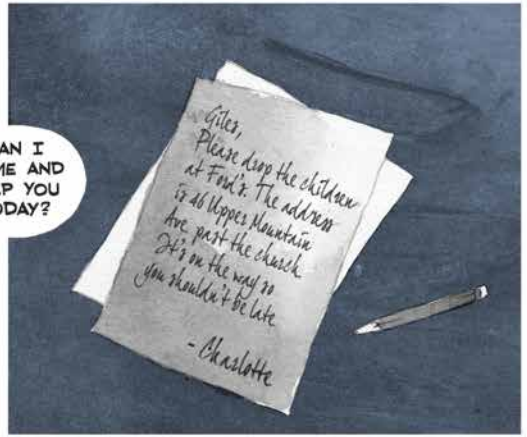 AN I
ME AND
LP YOU
ODAY?
Giles,
Please drop the children
at Ford's. The address
is 46 Upper Mountain
Ave. past the church.
It's on the way so
you shouldn't be late
- Charlotte